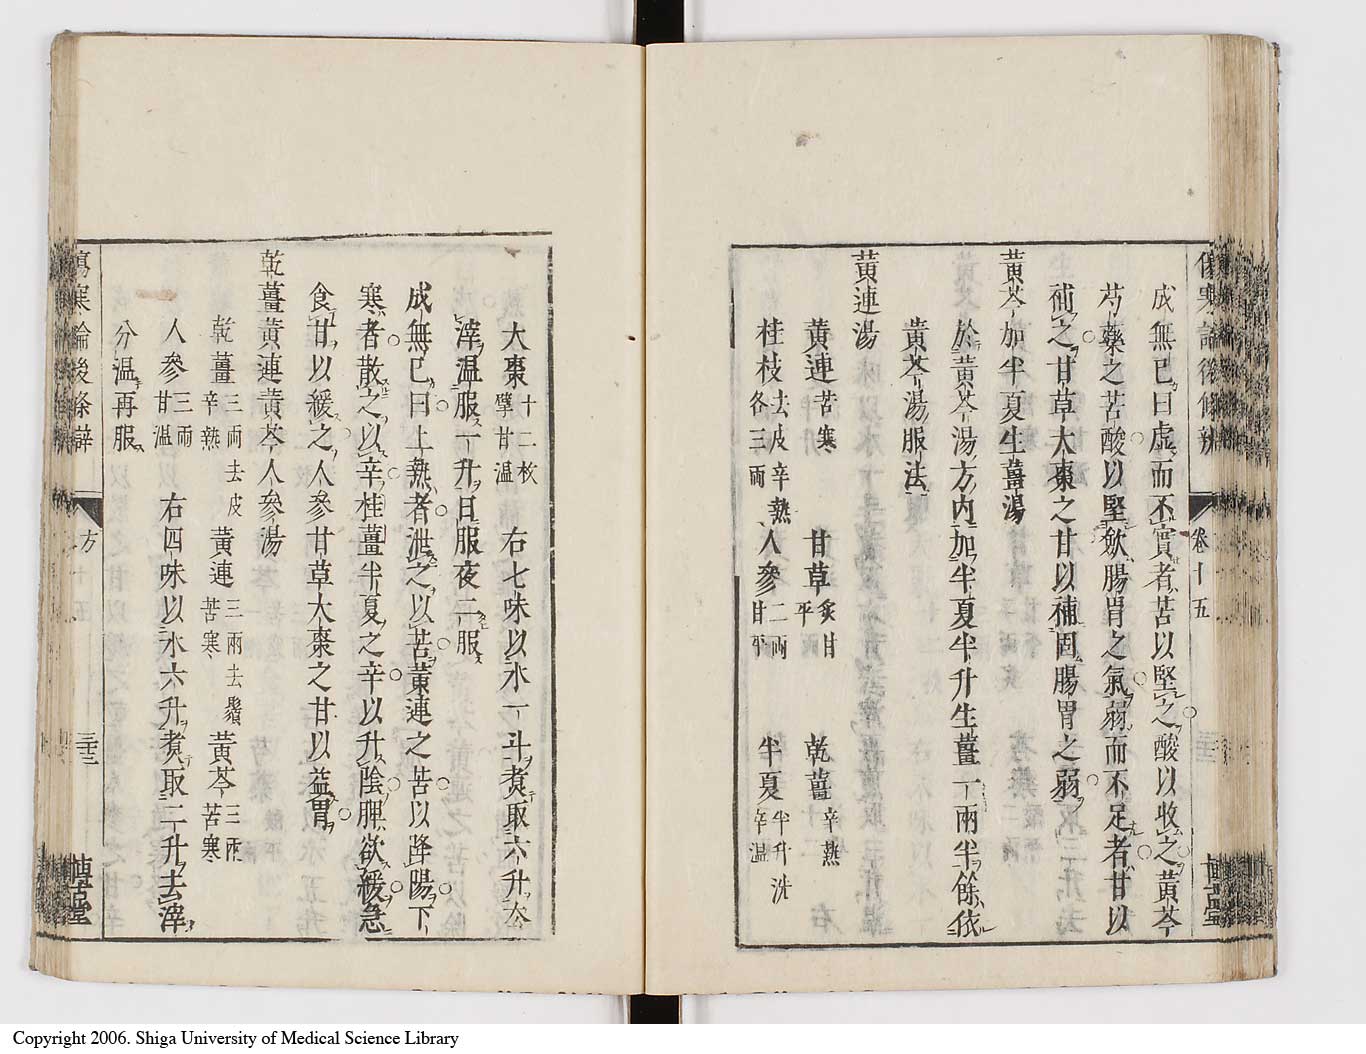 傷寒論後條辨
卷十五
博古堂
成無已曰虛而不實者苦以堅之酸以收之黃芩
芍藥之苦酸以堅歛腸胃之氣弱而不足者甘以
補之甘草大棗之甘以補固腸胃之弱
黃芩加半夏生薑湯
於黃芩湯方內加半夏半升生薑一兩半餘依
黃芩湯服法
黃連湯
黃連苦寒 甘草炙甘平 乾薑辛熱
桂枝去皮辛熱各三兩 人參二兩甘平 半夏半升洗辛溫
大棗十二枚擘甘溫 右七味以水一斗煮取六升去
滓温服一升日服夜二服
成無已曰上熱者泄之以苦黃連之苦以降陽下
寒者散之以辛桂薑半夏之辛以升陰脾欲緩急
食甘以緩之人參甘草大棗之甘以益胃
乾薑黃連黃芩人參湯
乾薑三兩去皮辛熱 黃連三兩去鬚苦寒 黃芩三兩苦寒
人參三兩甘溫 右四味以水六升煮取二升去滓
分温再服
傷寒論後條辨
方
三十三
博古堂
Copyright 2006. Shiga University of Medical Science Library